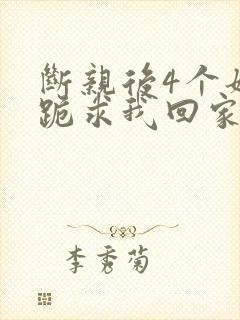 斷親後4个
跪求我回家
李秀菊